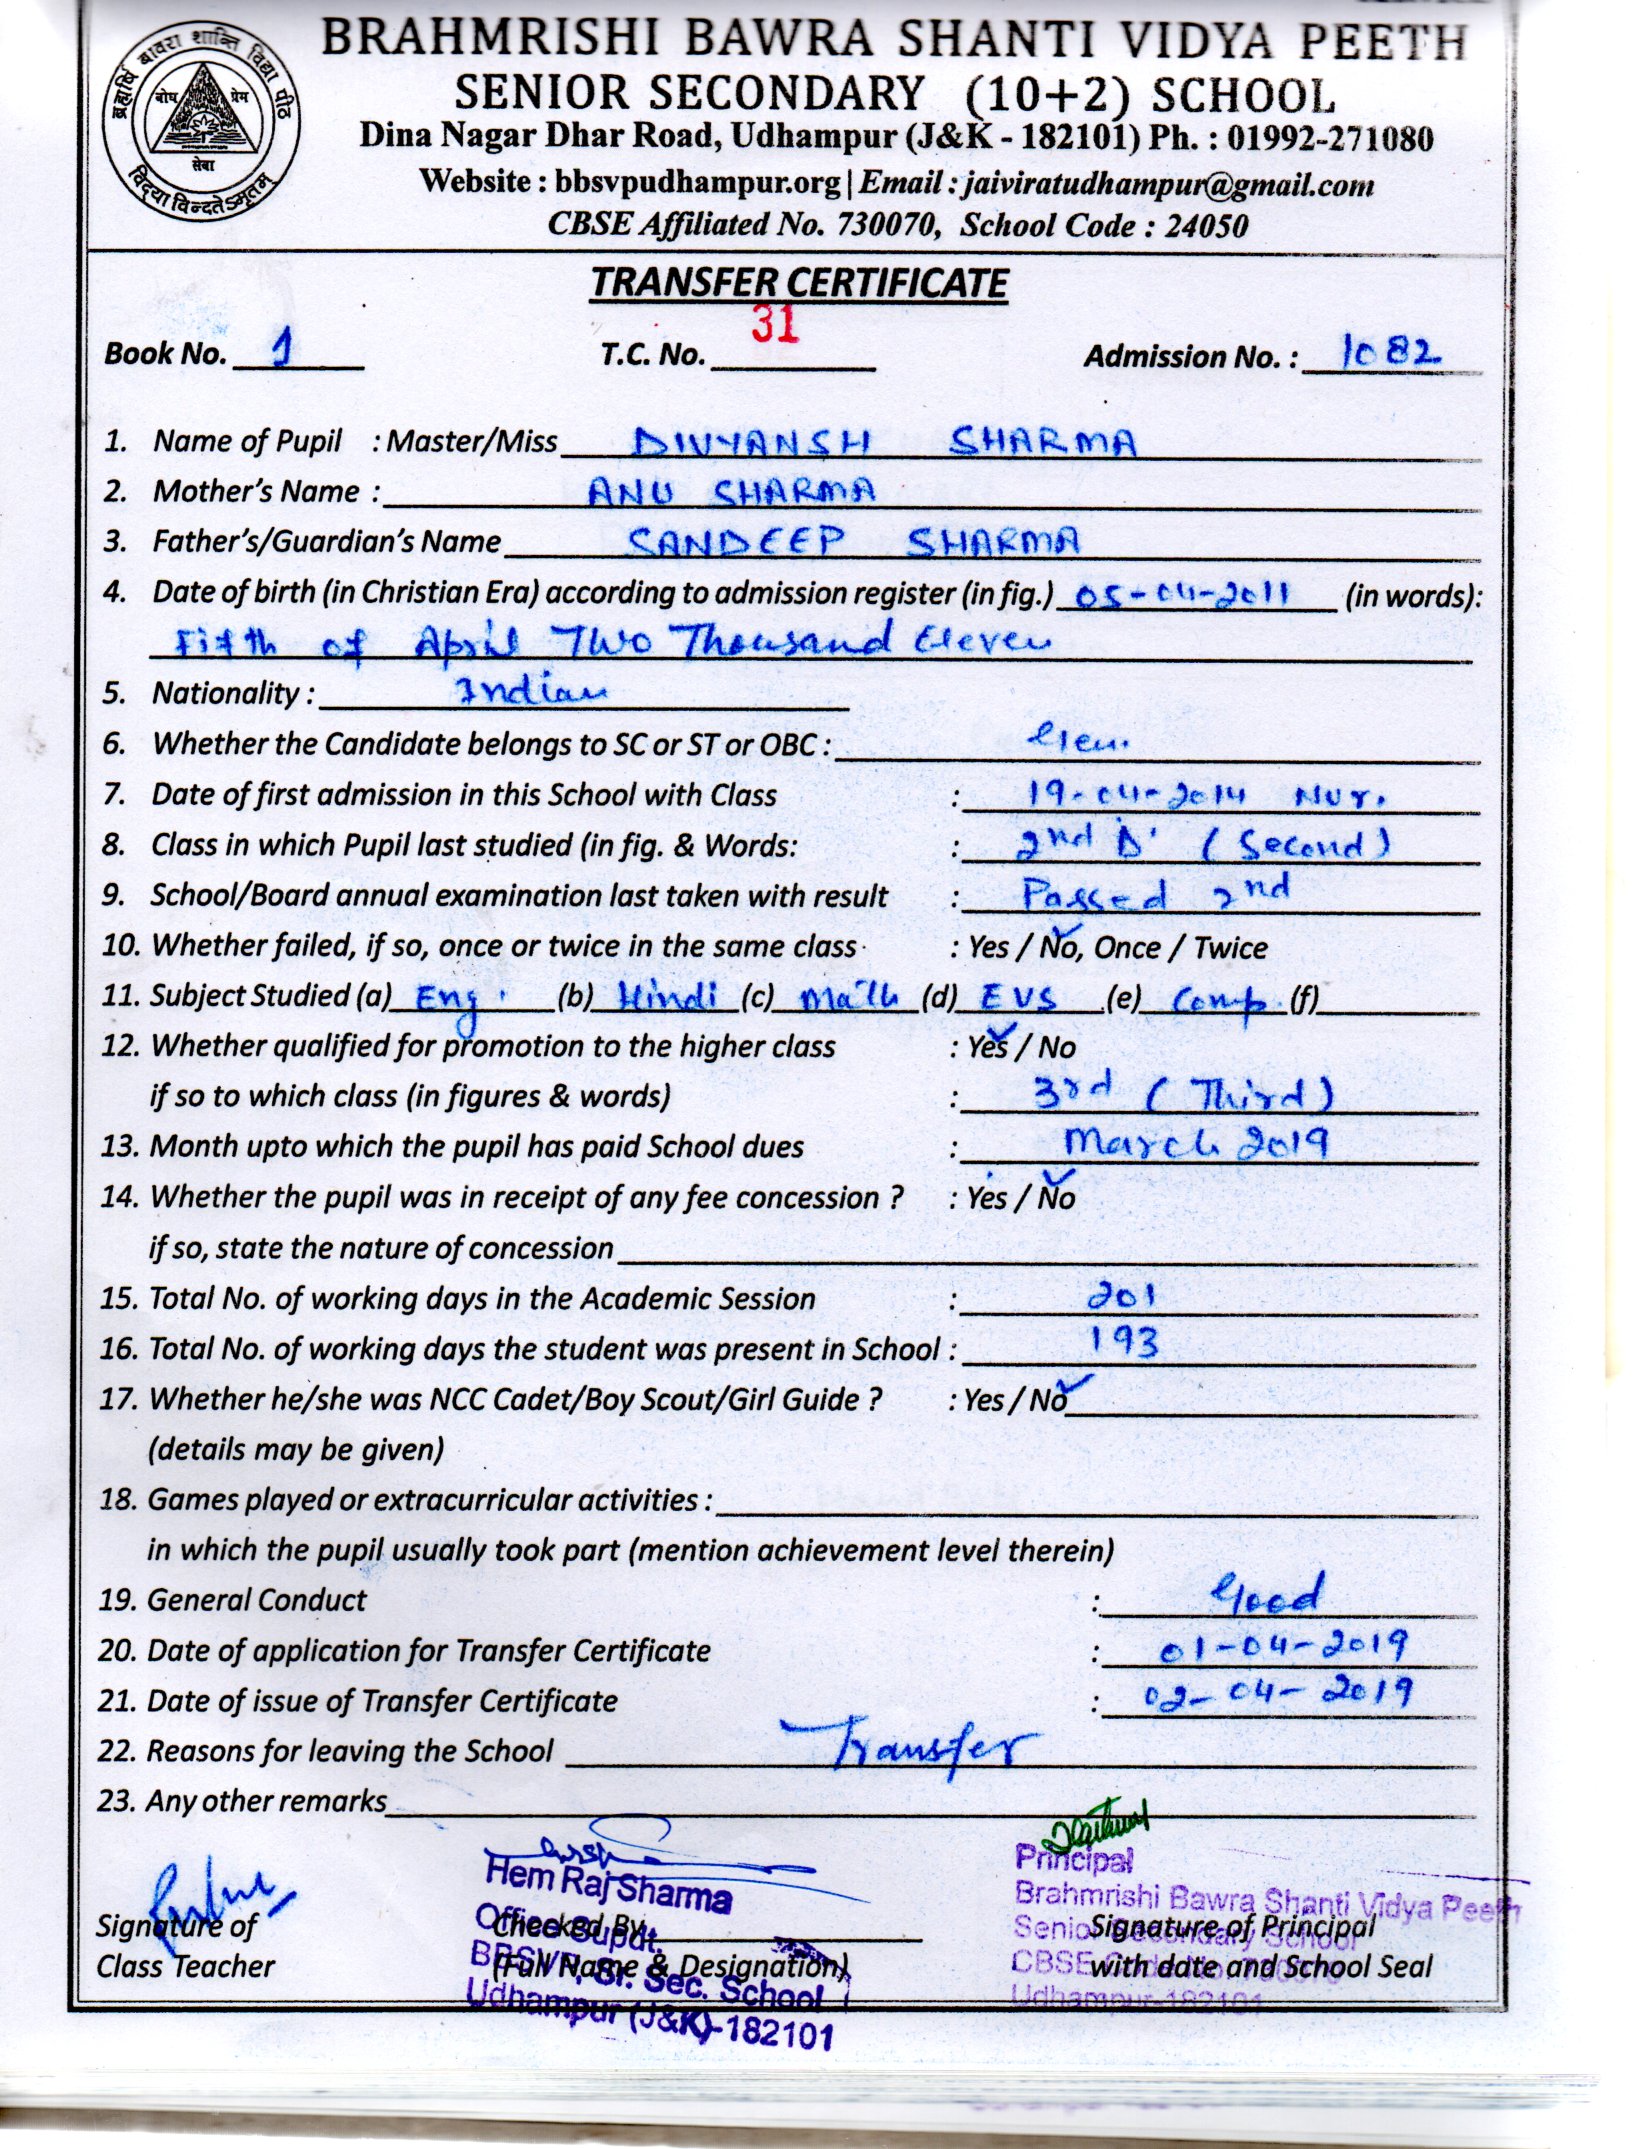 ब्रह्मर्षि बावरा शान्ति विद्या पीठ
बोध प्रेम
सेवा
विद्या विन्दतेऽमृतम्
BRAHMRISHI BAWRA SHANTI VIDYA PEETH
SENIOR SECONDARY (10+2) SCHOOL
Dina Nagar Dhar Road, Udhampur (J&K - 182101) Ph. : 01992-271080
Website : bbsvpudhampur.org | Email : jaiviratudhampur@gmail.com
CBSE Affiliated No. 730070, School Code : 24050
TRANSFER CERTIFICATE
Book No. 1 T.C. No. 31 Admission No. : 1082
1. Name of Pupil : Master/Miss DIVYANSH SHARMA
2. Mother's Name : ANU SHARMA
3. Father's/Guardian's Name SANDEEP SHARMA
4. Date of birth (in Christian Era) according to admission register (in fig.) 05-04-2011 (in words):
Fifth of April Two Thousand Eleven
5. Nationality : Indian
6. Whether the Candidate belongs to SC or ST or OBC : Gen.
7. Date of first admission in this School with Class : 19-04-2014 Nur.
8. Class in which Pupil last studied (in fig. & Words: : 2nd (Second)
9. School/Board annual examination last taken with result : Passed 2nd
10. Whether failed, if so, once or twice in the same class : Yes / No, Once / Twice
11. Subject Studied (a) Eng. (b) Hindi (c) Math (d) EVS (e) Comp. (f)
12. Whether qualified for promotion to the higher class : Yes / No
if so to which class (in figures & words) : 3rd (Third)
13. Month upto which the pupil has paid School dues : March 2019
14. Whether the pupil was in receipt of any fee concession ? : Yes / No
if so, state the nature of concession
15. Total No. of working days in the Academic Session : 201
16. Total No. of working days the student was present in School : 193
17. Whether he/she was NCC Cadet/Boy Scout/Girl Guide ? : Yes / No
(details may be given)
18. Games played or extracurricular activities :
in which the pupil usually took part (mention achievement level therein)
19. General Conduct : Good
20. Date of application for Transfer Certificate : 01-04-2019
21. Date of issue of Transfer Certificate : 02-04-2019
22. Reasons for leaving the School Transfer
23. Any other remarks
Signature of
Class Teacher
Hem Raj Sharma
Office Supdt.
BBSVP, Sr. Sec. School
Udhampur (J&K)-182101
Checked By
(Full Name & Designation)
Principal
Brahmrishi Bawra Shanti Vidya Peeth
Senior Secondary School
CBSE
Udhampur-182101
Signature of Principal
with date and School Seal